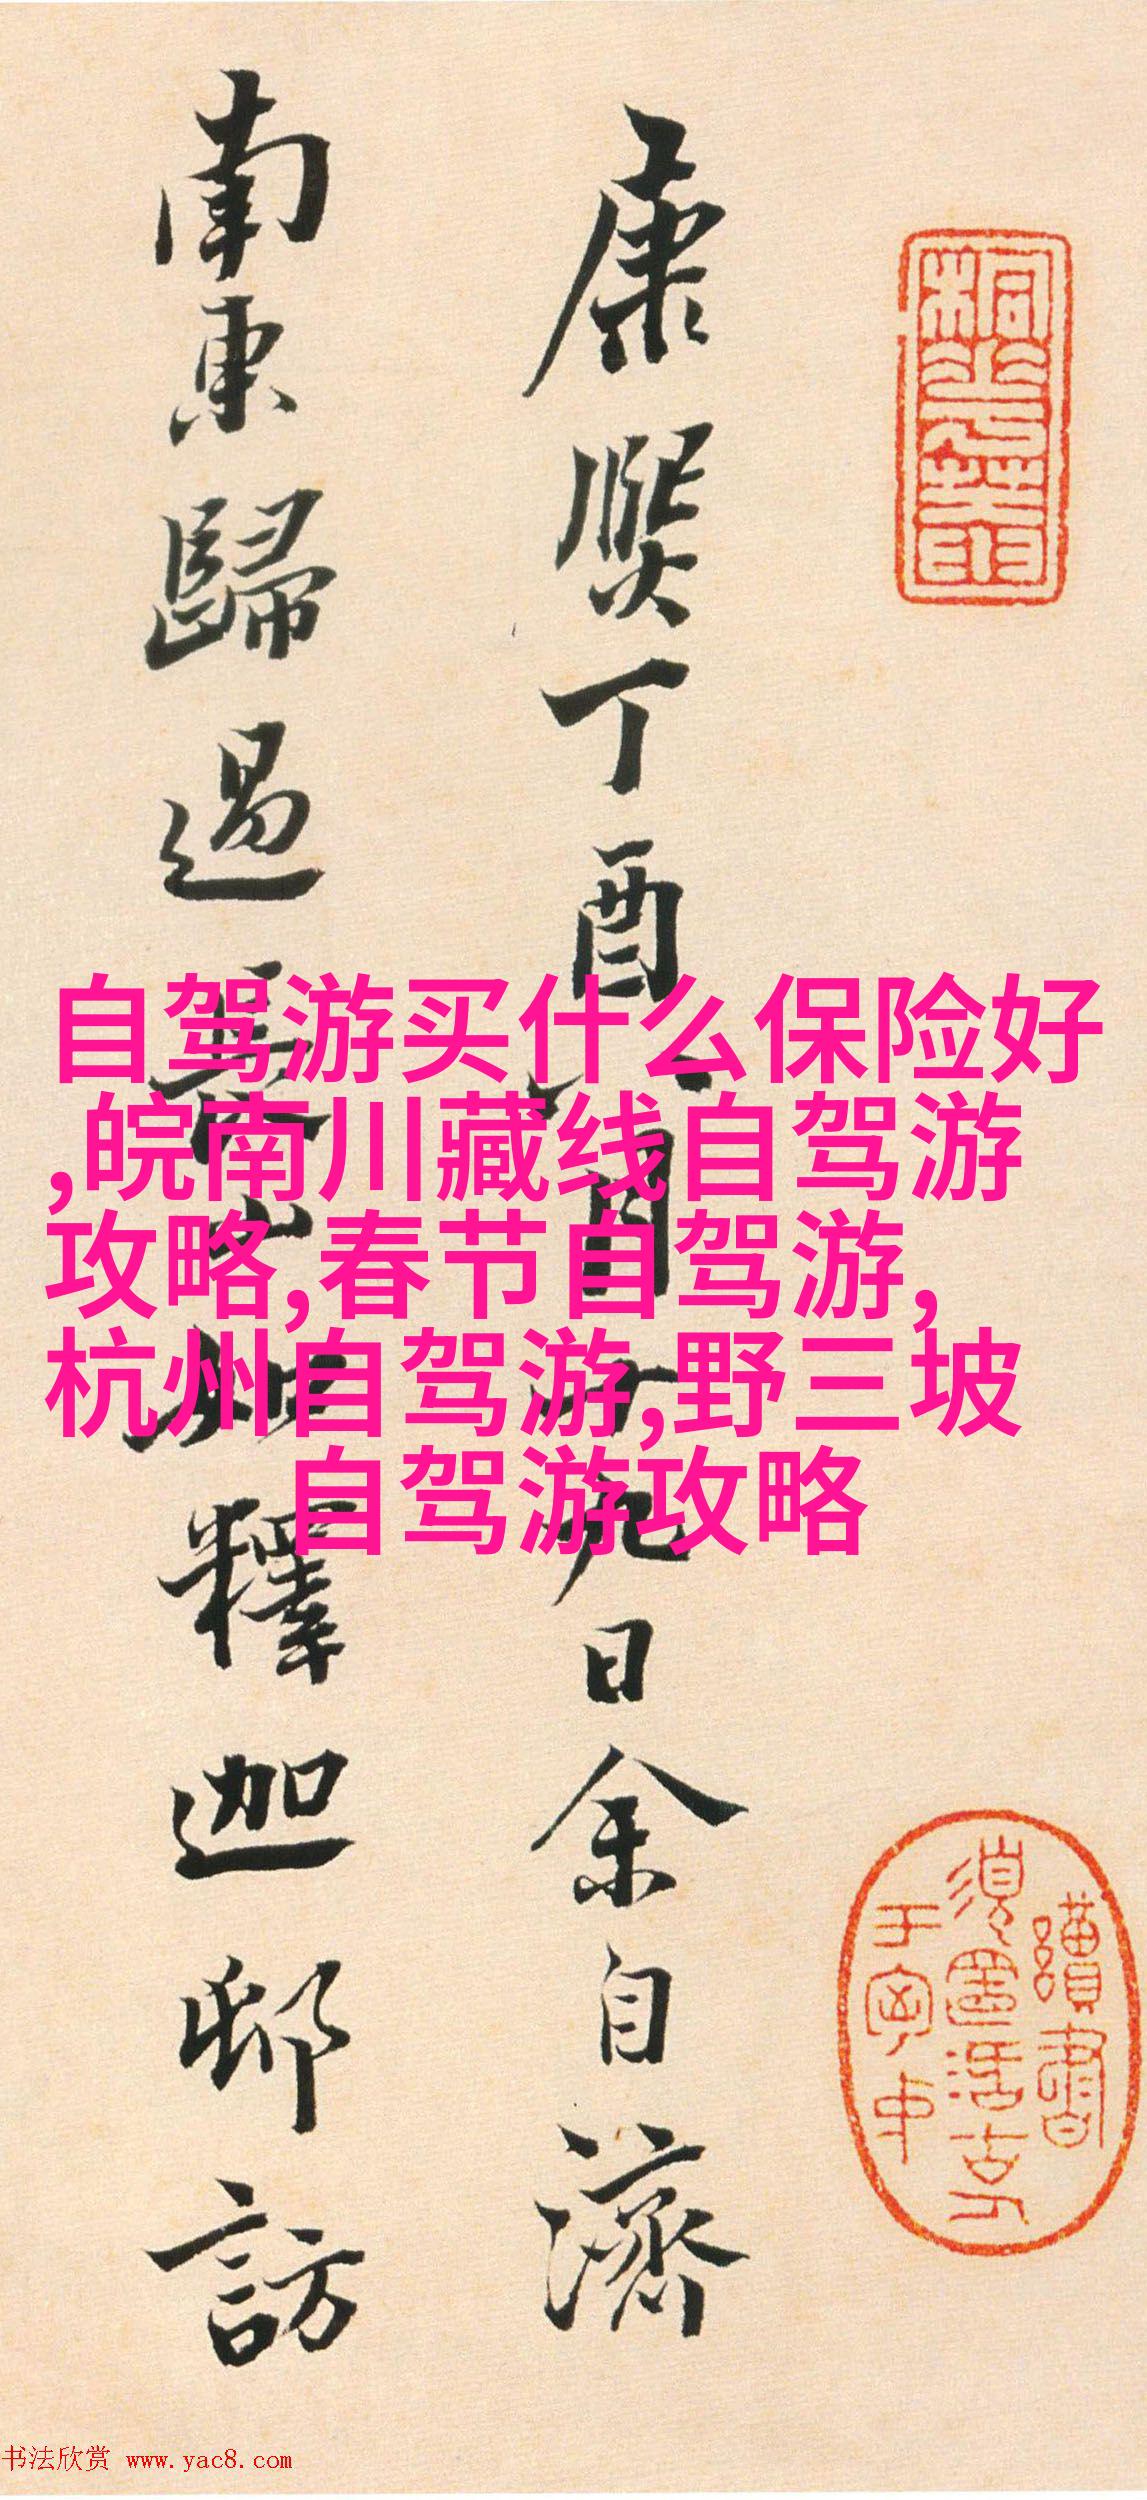 康熙丁酉六月廿九日余自濟
南東歸過長山如釋迦邨訪
自驾游买什么保险好
,皖南川藏线自驾游
攻略,春节自驾游,
杭州自驾游,野三坡
自驾游攻略
书法欣赏 www.yac8.com